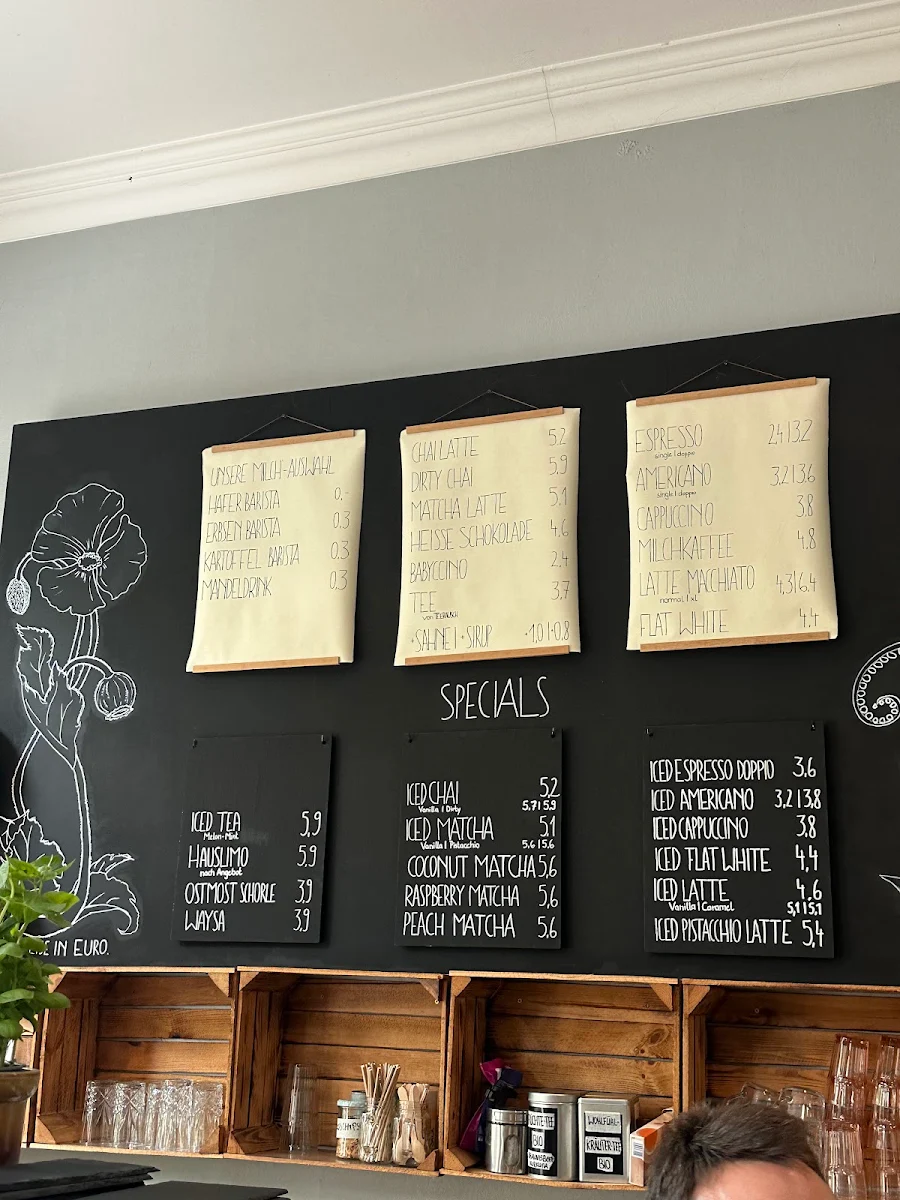 UNSERE MILCH-AUSWAHL
HAFER BARISTA 0,-
ERBSEN BARISTA 0.3
KARTOFFEL BARISTA 0.3
MANDELDRINK 0.3
CHAI LATTE 5.2
DIRTY CHAI 5.9
MATCHA LATTE 5.1
HEISSE SCHOKOLADE 4.6
BABYCCINO 2.4
TEE 3.7
von
+SAHNE | +SIRUP +1,0 | +0.8
ESPRESSO 2.4 | 3.2
single | doppio
AMERICANO 3.2 | 3.6
single | doppio
CAPPUCCINO 3.8
MILCHKAFFEE 4.8
LATTE MACCHIATO 4,3 | 6.4
normal | xl
FLAT WHITE 4.4
SPECIALS
ICED TEA 5,9
Melon-Mint
HAUSLIMO 5,9
nach Angebot
OSTMOST SCHORLE 3,9
WAYSA 3,9
ICED CHAI 5,2
Vanilla | Dirty 5.7 | 5.9
ICED MATCHA 5,1
Vanilla | Pistacchio 5.6 | 5.6
COCONUT MATCHA 5,6
RASPBERRY MATCHA 5,6
PEACH MATCHA 5,6
ICED ESPRESSO DOPPIO 3,6
ICED AMERICANO 3,2 | 3,8
ICED CAPPUCCINO 3,8
ICED FLAT WHITE 4,4
ICED LATTE 4,6
Vanilla | Caramel 5,1 | 5,1
ICED PISTACCHIO LATTE 5,4
IN EURO.
BIO
WOHLFÜHL-
KRÄUTERTEE
BIO